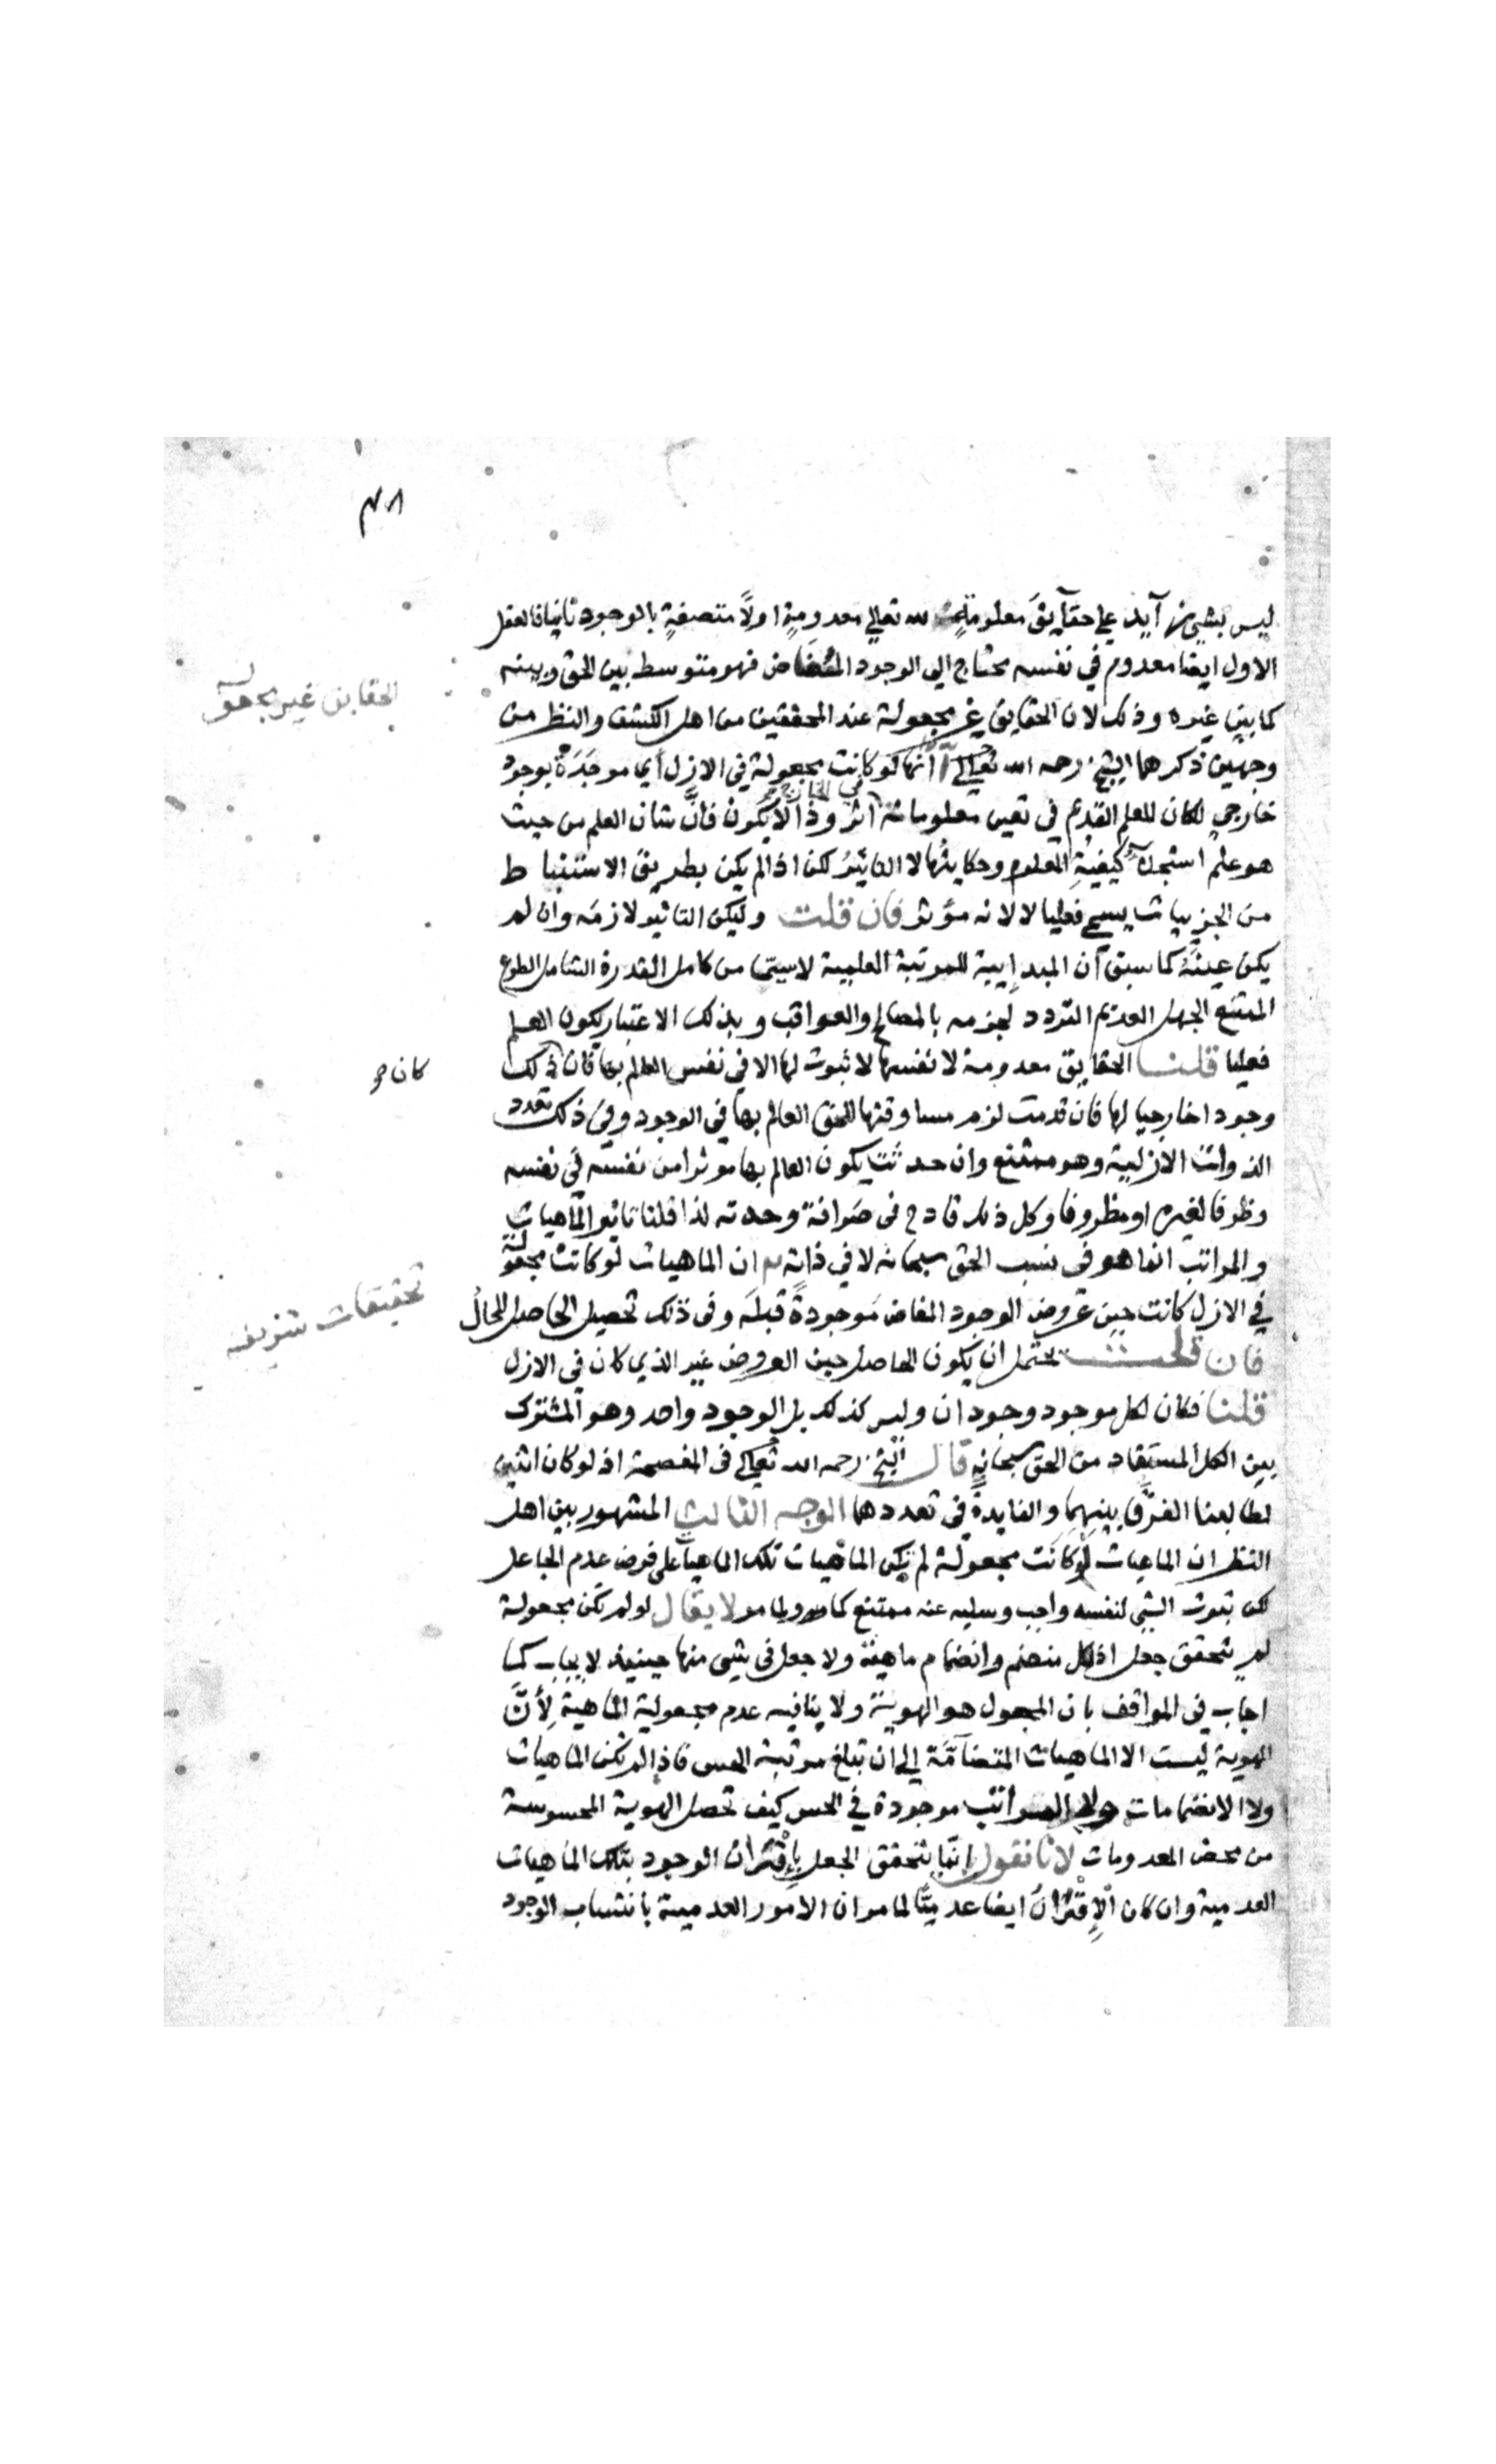 ٣٨
ليس بشيء زايد على حقايق معلومة لله تعالى معدومة اولاً متصفة بالوجود ثانيا فالعقل
الاول ايضا معدوم في نفسه محتاج الى الوجود المفاض فهو متوسط بين الحق وبينه
الحقايق غير مجعولة
كما بين غيره وذلك لان الحقايق غير مجعولة عند المحققين من اهل الكشف والنظر من
وجهين ذكرهما الشيخ رحمه الله تعالى آ انها لو كانت مجعولة في الازل اي موجدة بوجود
في الخارج
خارجي لكان للعلم القديم في تعين معلوماته اثر وذا لا يكون فان شان العلم من حيث
هو علم استجلاء كيفية المعلوم وحكايتها لا التاثير لكن اذا لم يكن بطريق الاستنباط
من الجزييات يسمى فعليا لا لانه مؤثر فان قلت وليكن التاثير لازمه وان لم
يكن عينه كما سبق ان المبدايية للمرتبة العلمية لاسيما من كامل القدرة الشامل الطوع
الممتنع الجهل العديم التردد لجزمه بالمصالح والعواقب وبذلك الاعتبار يكون العلم
فعليا قلنا الحقايق معدومة لانفسها لا ثبوت لها الا في نفس العالم بها فان ذلك
كان صح
وجودا خارجيا لها فان قدمت لزم مساوقتها للحق العالم بها في الوجود وفي ذلك تعدد
الذوات الازلية وهو ممتنع وان حدثت يكون العالم بها مؤثرا من نفسه في نفسه
وظرفا لغيره او مظروفا وكل ذلك قادح في صرافة وحدته لذا قلنا تاثير الماهيات
والمراتب انما هو في نسب الحق سبحانه لا في ذاته ب ان الماهيات لو كانت مجعولة
تحقيقات شريفه
في الازل كانت حين عروض الوجود المفاض موجودة قبله وفي ذلك تحصيل الحاصل المحال
فان قلت يحتمل ان يكون الحاصل حين العروض غير الذي كان في الازل
قلنا فكان لكل موجود وجودان وليس كذلك بل الوجود واحد وهو المشترك
بين الكل المستفاد من الحق سبحانه قال الشيخ رحمه الله تعالى في المفصحة اذ لو كان اثنين
لطالبنا الفرق بينهما والفايدة في تعددهما الوجه الثالث المشهور بين اهل
النظر ان الماهيات لو كانت مجعولة لم تكن الماهيات تلك الماهيات على فرض عدم الجاعل
لكن ثبوت الشيء لنفسه واجب وسلبه عنه ممتنع كما مر لا يقال لو لم تكن مجعولة
لم يتحقق جعل اذ الكل منضم وانضمام ماهية ولا جعل في شيء منها حينيذ لا يجاب كما
اجاب في المواقف بان المجعول هو الهوية ولا ينافيه عدم مجعولية الماهية لأن
الهوية ليست الا الماهيات المتضامّة الى ان تبلغ مرتبة الحس فاذا لم تكن الماهيات
ولا الانضمامات ولا المراتب موجودة في الحس كيف تحصل الهوية المحسوسة
من محض المعدومات لانا نقول انما يتحقق الجعل باقتران الوجود بتلك الماهيات
العدمية وان كان الاقتران ايضا عدميّا لما مر ان الامور العدمية بانتساب الوجود